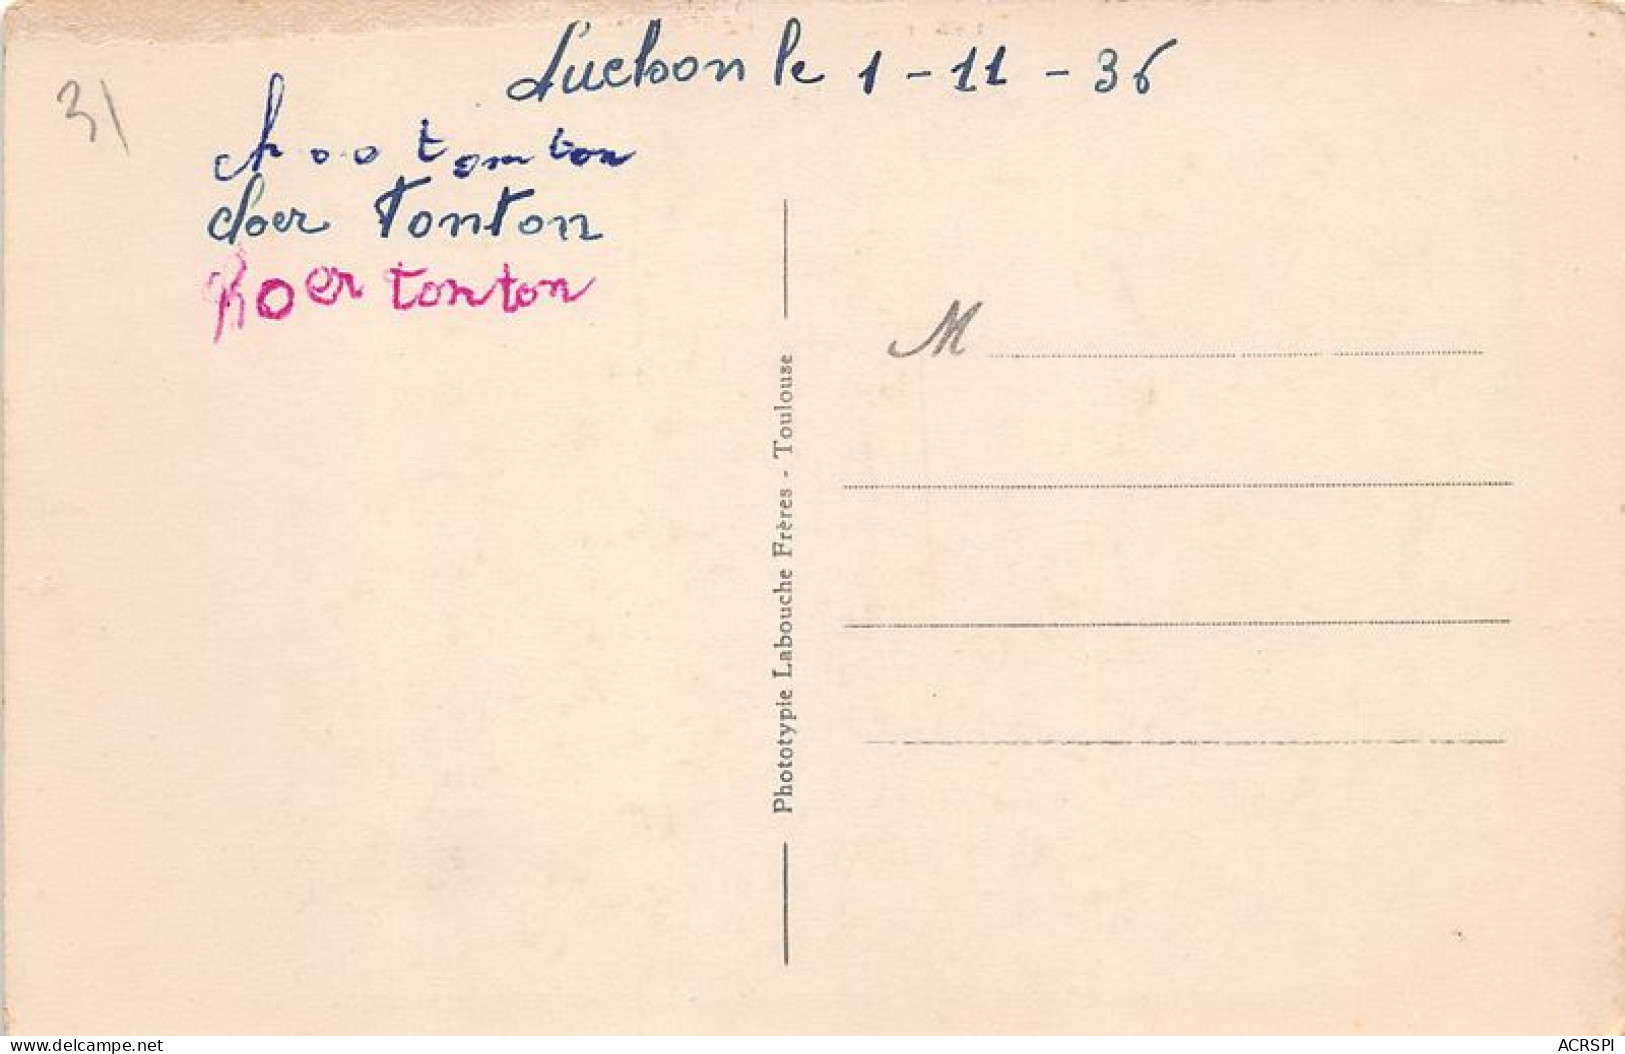 Luchon le 1-11-36
31
tonton
cher Tonton
tonton
M
Phototypie Labouche Frères - Toulouse
www.delcampe.net
ACRSPI